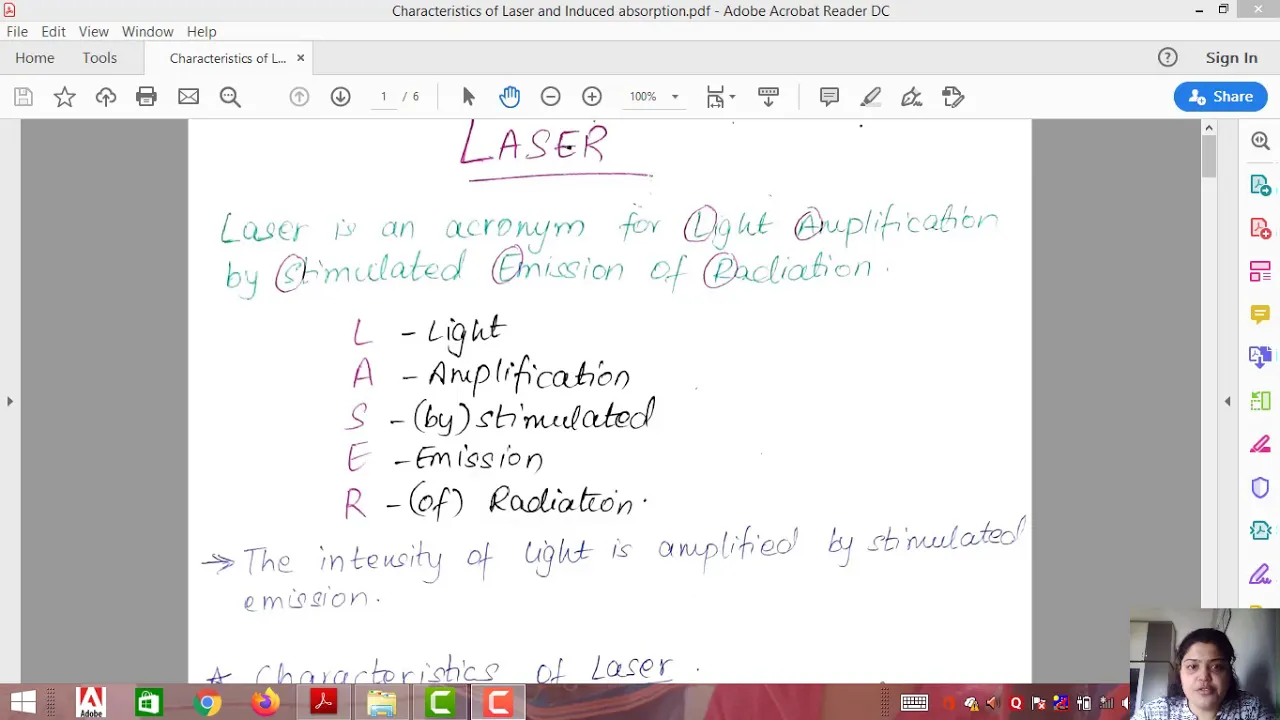 Characteristics of Laser and Induced absorption.pdf - Adobe Acrobat Reader DC
File Edit View Window Help
Home Tools Characteristics of L... × Sign In
1 / 6 100% Share
LASER
Laser is an acronym for Light Amplification
by Stimulated Emission of Radiation.
L - Light
A - Amplification
S - (by) stimulated
E - Emission
R - (of) Radiation.
→ The intensity of light is amplified by stimulated
emission.
★ Characteristics of Laser.
Adobe